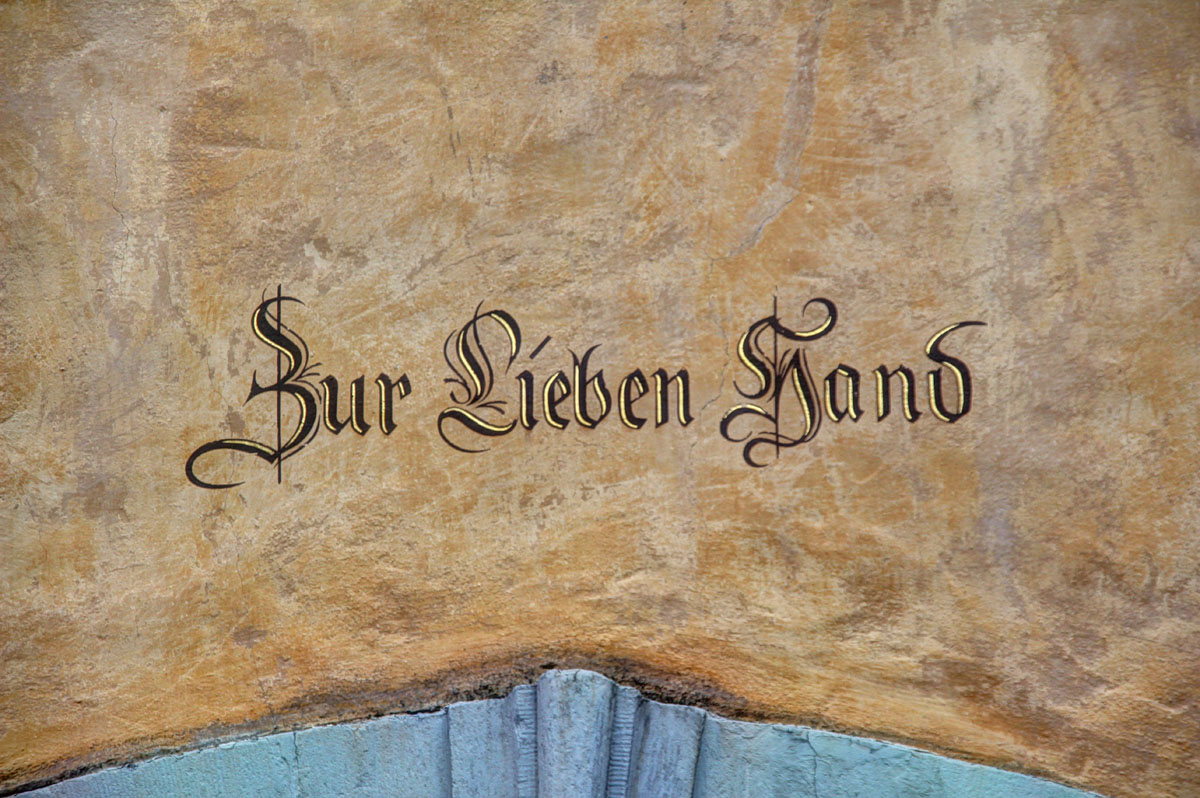 Zur Lieben Hand